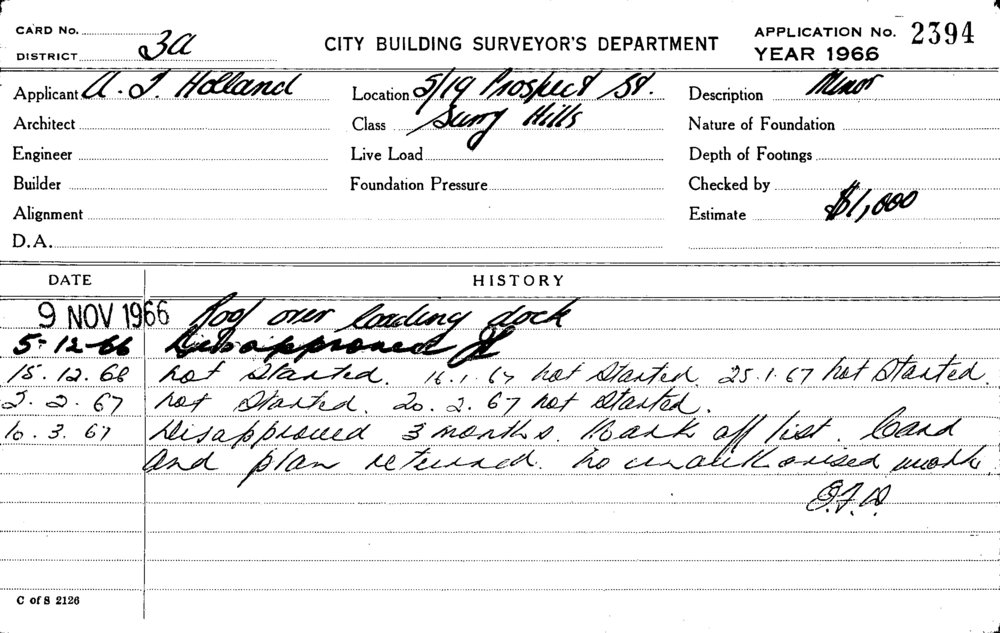 CARD No.
DISTRICT 3a
CITY BUILDING SURVEYOR'S DEPARTMENT
APPLICATION No. 2394
YEAR 1966
Applicant A. J. Holland Location 5/19 Prospect St. Description Minor
Architect Class Surry Hills Nature of Foundation
Engineer Live Load Depth of Footings
Builder Foundation Pressure Checked by
Alignment Estimate $1,000
D.A.
DATE HISTORY
9 NOV 1966 Roof over loading dock
5-12-66 Disapproved
15.12.66 not Started. 16.1.67 not Started. 25.1.67 not Started.
2.2.67 not Started. 20.2.67 not Started.
10.3.67 Disapproved 3 months. Mark off list. Card
and plan returned. no unauthorised work.
C of S 2126